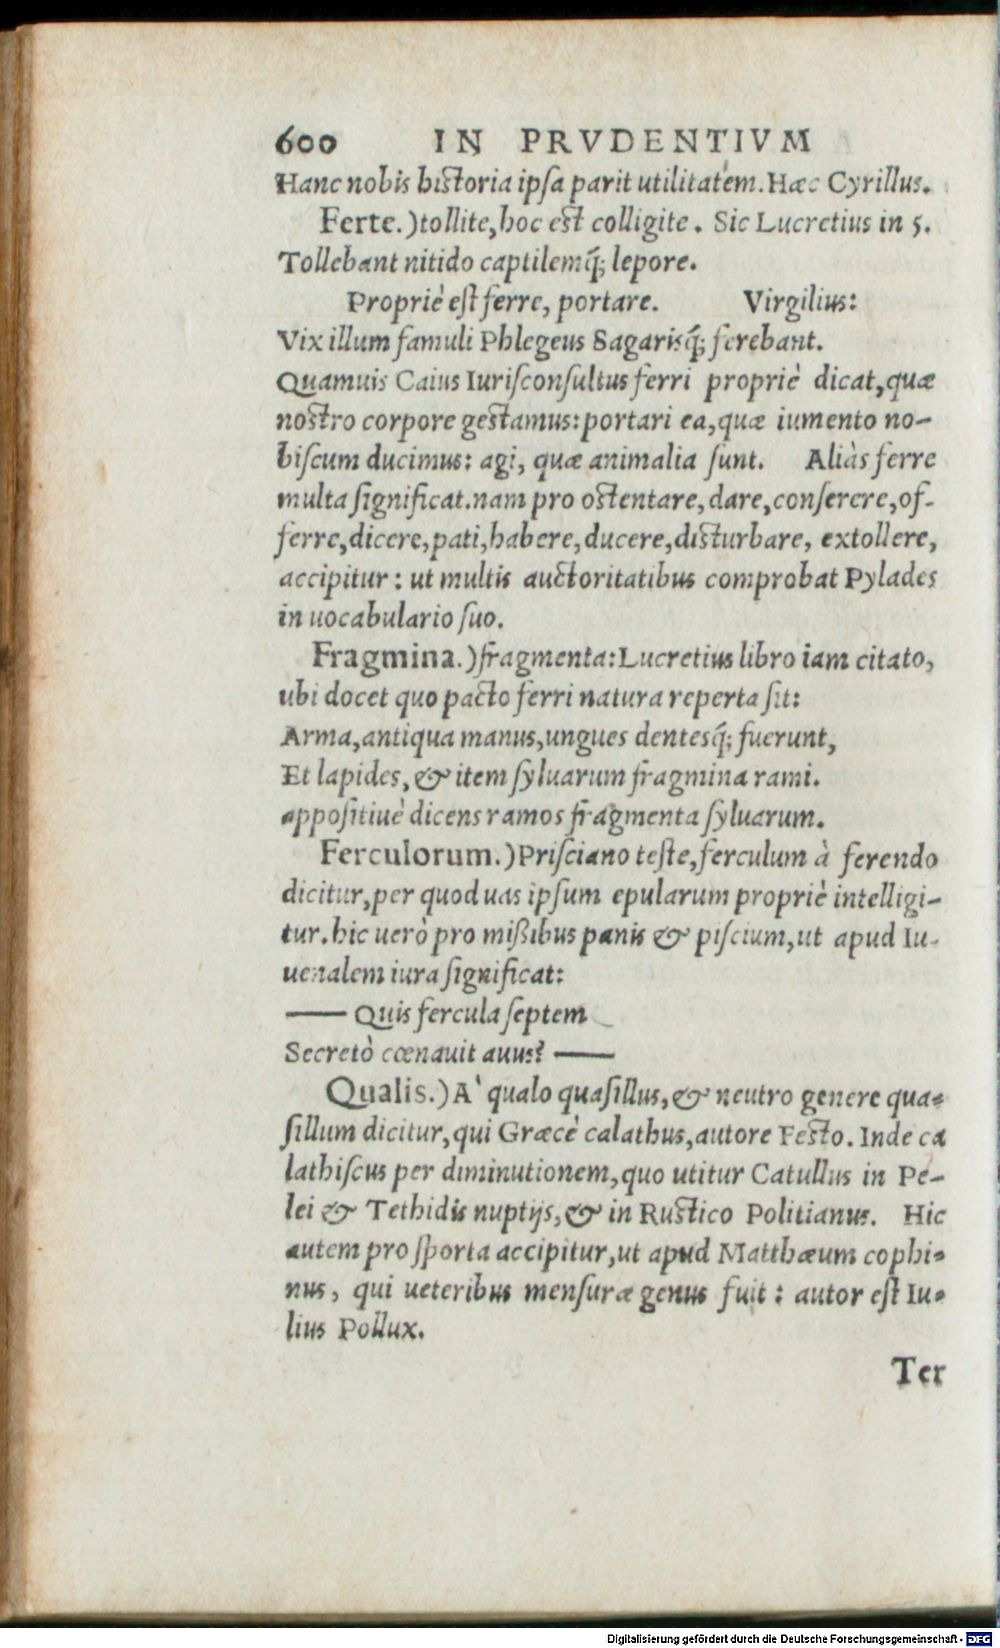 600 IN PRVDENTIVM
Hanc nobis historia ipſa parit utilitatem. Hæc Cyrillus.
Ferte.) tollite, hoc est colligite. Sic Lucretius in 5.
Tollebant nitido captilemq́; lepore.
Propriè eſt ferre, portare. Virgilius:
Vix illum famuli Phlegeus Sagarisq́; ferebant.
Quamuis Caius Iuriſconſultus ferri propriè dicat, quæ
nostro corpore gestamus: portari ea, quæ iumento no-
biſcum ducimus: agi, quæ animalia ſunt. Aliàs ferre
multa ſignificat. nam pro ostentare, dare, conſerere, of-
ferre, dicere, pati, habere, ducere, disturbare, extollere,
accipitur: ut multis auctoritatibus comprobat Pylades
in uocabulario ſuo.
Fragmina.) fragmenta: Lucretius libro iam citato,
ubi docet quo pacto ferri natura reperta ſit:
Arma, antiqua manus, ungues dentesq́; fuerunt,
Et lapides, & item ſyluarum fragmina rami.
appoſitiuè dicens ramos fragmenta ſyluarum.
Ferculorum.) Priſciano teſte, ferculum à ferendo
dicitur, per quod uas ipſum epularum propriè intelligi-
tur. hic uerò pro mißibus panis & piſcium, ut apud Iu-
uenalem iura ſignificat:
—— Quis fercula ſeptem
Secretò cœnauit auus? ——
Qualis.) A` qualo quaſillus, & neutro genere qua-
ſillum dicitur, qui Græcè calathus, autore Festo. Inde ca
lathiſcus per diminutionem, quo utitur Catullus in Pe-
lei & Tethidis nuptijs, & in Rustico Politianus. Hic
autem pro ſporta accipitur, ut apud Matthæum cophi-
nus, qui ueteribus menſuræ genus fuit: autor eſt Iu-
lius Pollux.
Ter
Digitalisierung gefördert durch die Deutsche Forschungsgemeinschaft - DFG